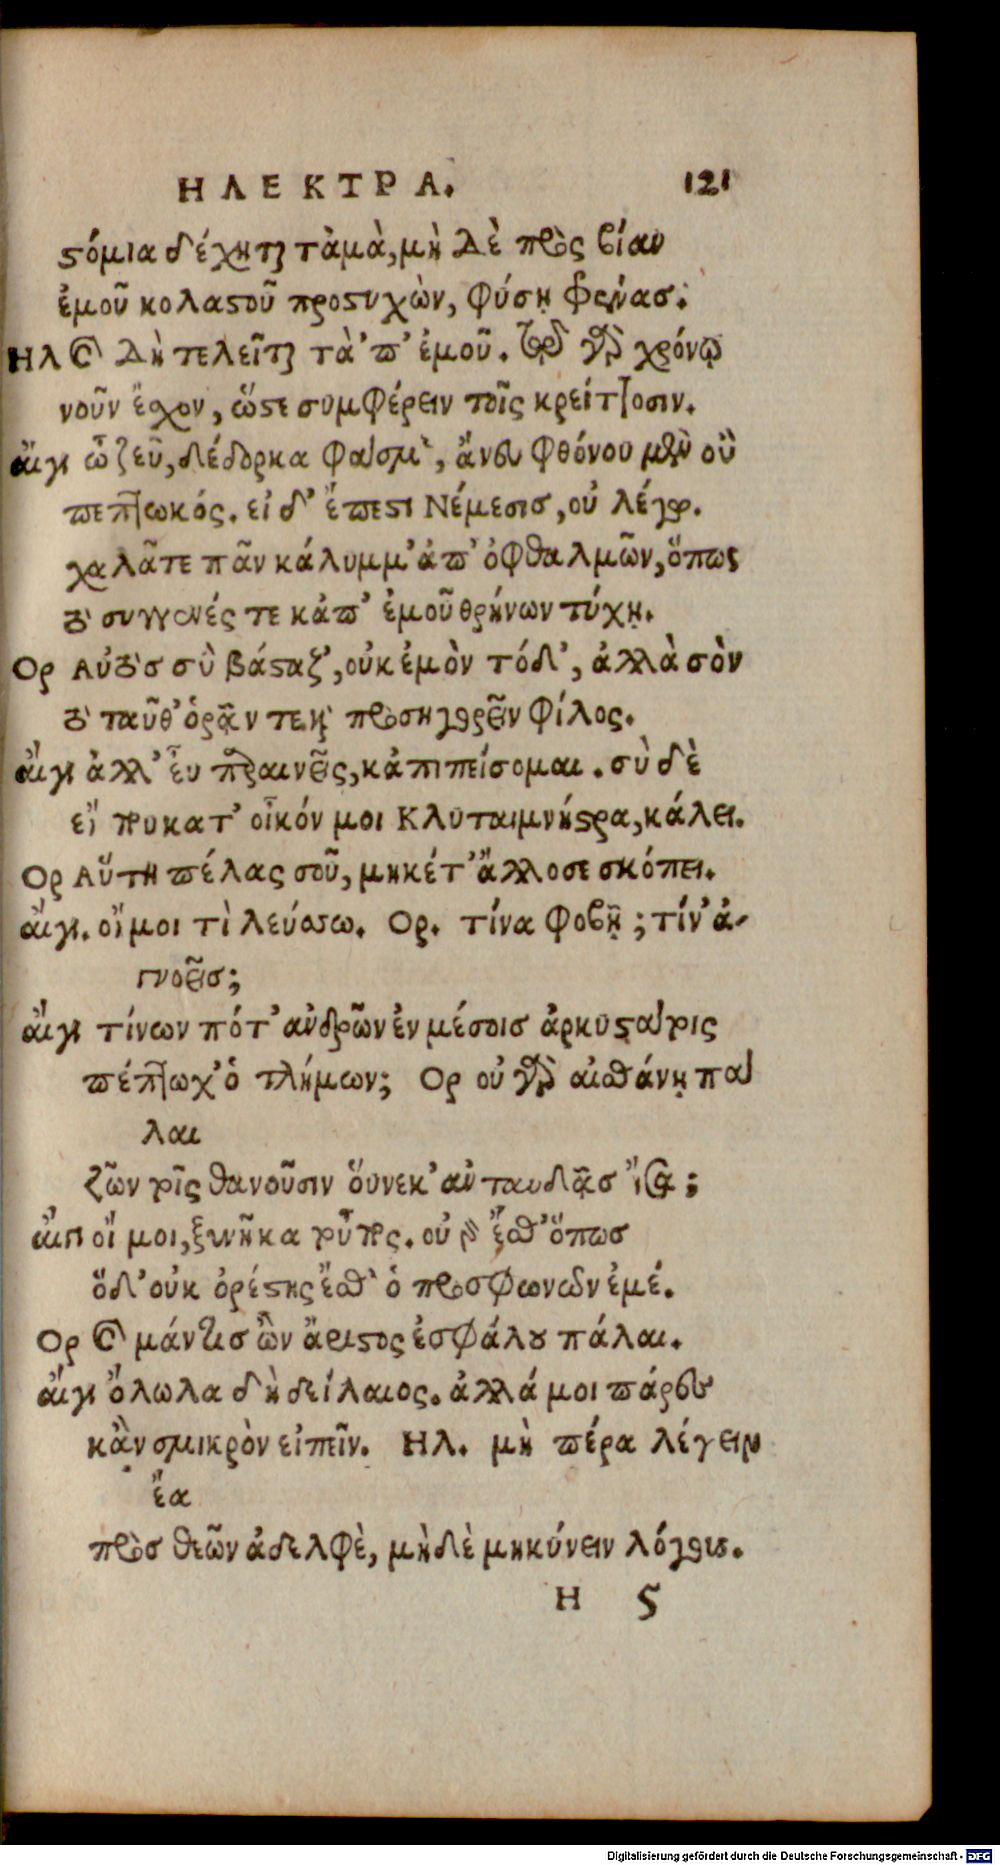 ΗΛΕΚΤΡΑ. 121
στόμια δέχηται τἀμὰ, μὴ δὲ πρὸς βίαν
ἐμοῦ κολαστοῦ προστυχὼν, φύσῃ φρένας.
Ηλ Καὶ δὴ τελεῖται τὰ ᾽π᾽ ἐμοῦ. τῷ γὰρ χρόνῳ
νοῦν ἔσχον, ὥστε συμφέρειν τοῖς κρείττοσιν.
αἴγι ὦ ζεῦ, δέδορκα φάσμ᾽, ἄνευ φθόνου μὲν οὐ
πεπτωκός. εἰ δ᾽ ἔπεστι Νέμεσις, οὐ λέγω.
χαλᾶτε πᾶν κάλυμμ᾽ ἀπ᾽ ὀφθαλμῶν, ὅπως
τὸ συγγενές τε κἀπ᾽ ἐμοῦ θρήνων τύχῃ.
Ορ Αὐτὸς σὺ βάσταζ᾽, οὐκ ἐμὸν τόδ᾽, ἀλλὰ σὸν
τὸ ταῦθ᾽ ὁρᾷν τε καὶ προσηγορεῖν φίλος.
αἴγι ἀλλ᾽ εὖ παραινεῖς, κἀπιπείσομαι. σὺ δὲ
εἴ που κατ᾽ οἶκόν μοι Κλυταιμνήστρα, κάλει.
Ορ Αὕτη πέλας σοῦ, μηκέτ᾽ ἄλλοσε σκόπει.
αἴγι. οἴμοι τὶ λεύσσω. Ορ. τίνα φοβῇ; τίν᾽ ἀ-
γνοεῖς;
αἴγι τίνων πότ᾽ ἀνδρῶν ἐν μέσοις ἀρκυστάτοις
πέπτωχ᾽ ὁ τλήμων; Ορ οὐ γὰρ αἰσθάνῃ πά
λαι
ζῶν τοῖς θανοῦσιν ὁύνεκ᾽ ἀνταυδᾷς ἴσα;
αἴγι οἴ μοι, ξυνῆκα τοὖπος. οὐ γὰρ ἔσθ᾽ ὅπως
ὅδ᾽ οὐκ ὀρέστης ἔσθ᾽ ὁ προσφωνῶν ἐμέ.
Ορ Καὶ μάντις ὢν ἄριστος ἐσφάλου πάλαι.
αἴγι ὄλωλα δὴ δείλαιος. ἀλλά μοι πάρες
κἂν σμικρὸν εἰπεῖν. Ηλ. μὴ πέρα λέγειν
ἔα
πρὸς θεῶν ἀδελφὲ, μὴδὲ μηκύνειν λόγους.
Η 5
Digitalisierung gefördert durch die Deutsche Forschungsgemeinschaft - DFG